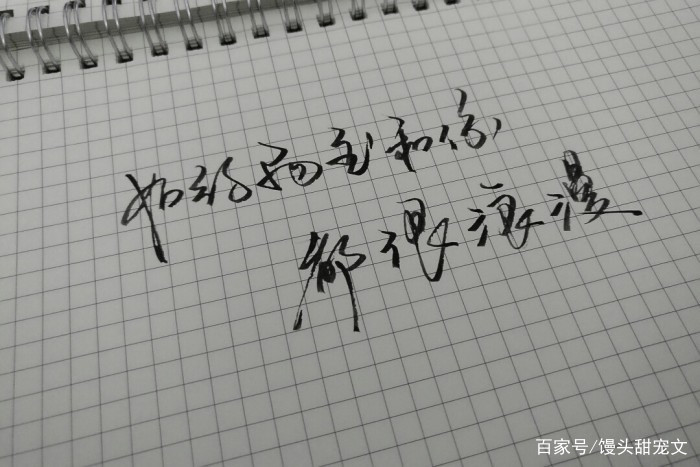 如约而至和你
都很浪漫
百家号/馒头甜宠文